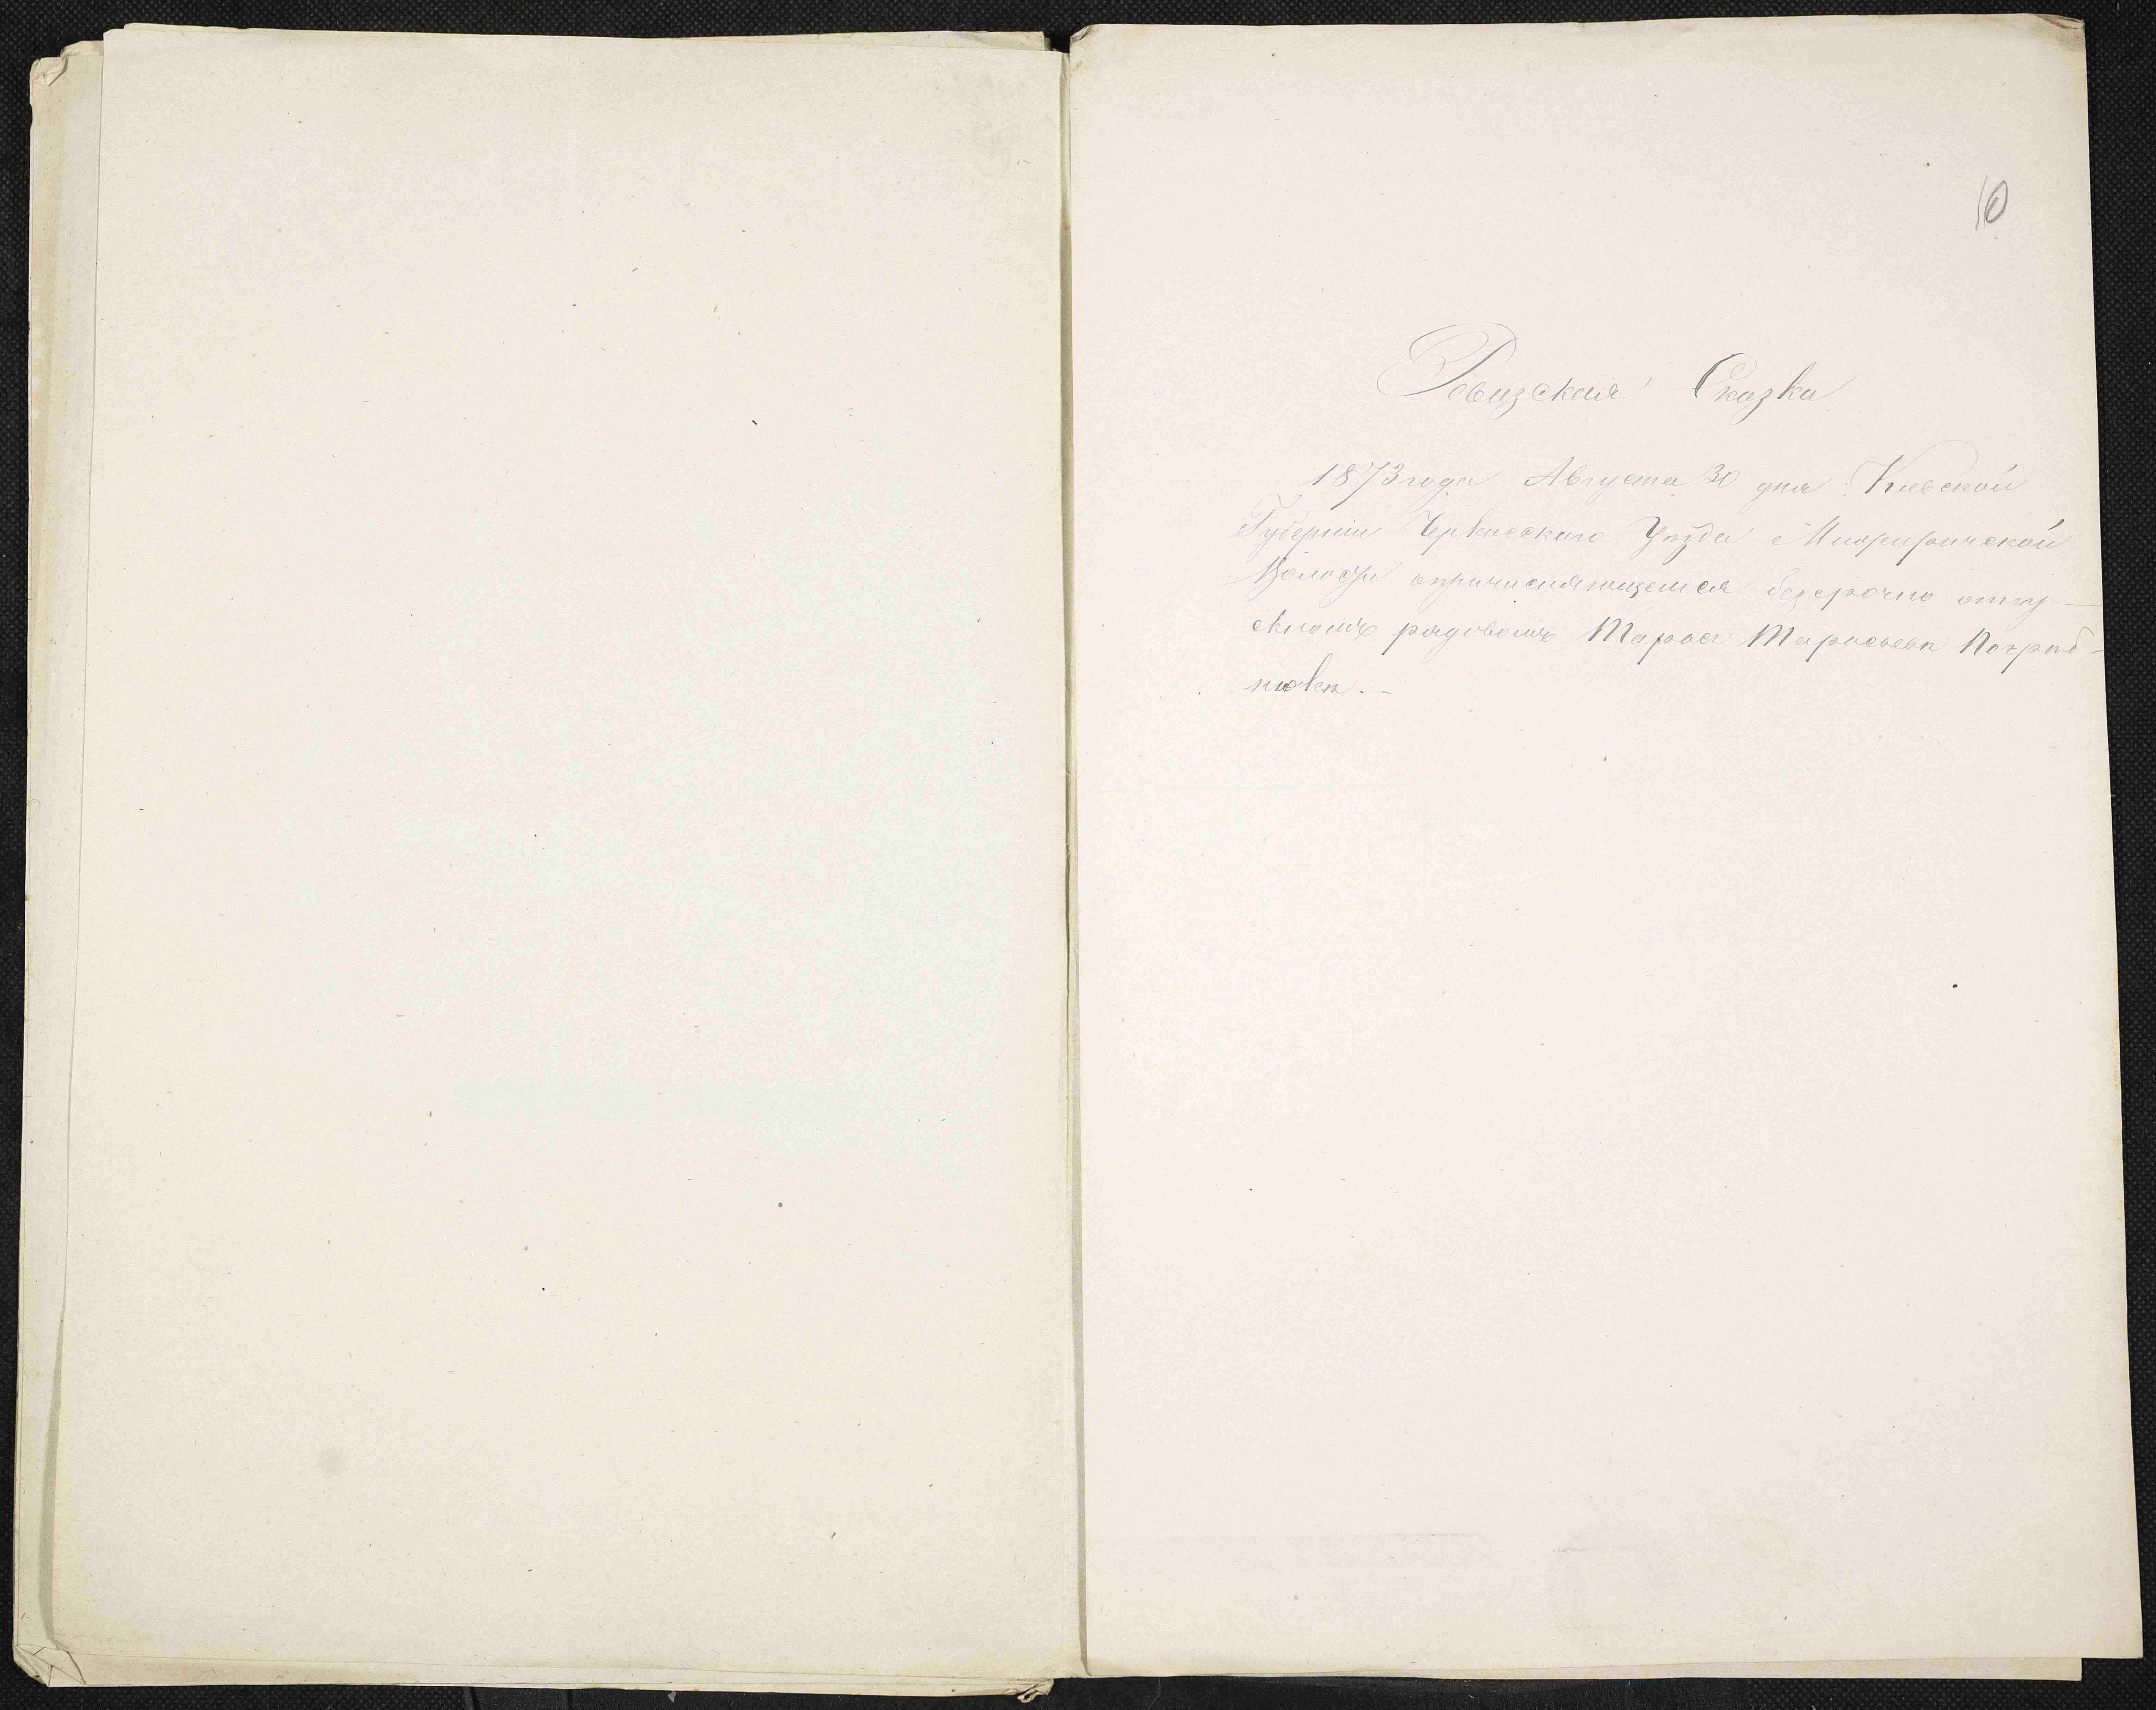 10
Ревизская Сказка
1873 года Августа 30 дня Киевской
Губерніи Черкасского Уезда
Волости опричисляющемся безсрочно отпу-
скномъ рядовомъ Тарасѣ Тарасьевѣ Погриб-
нюкѣ. -